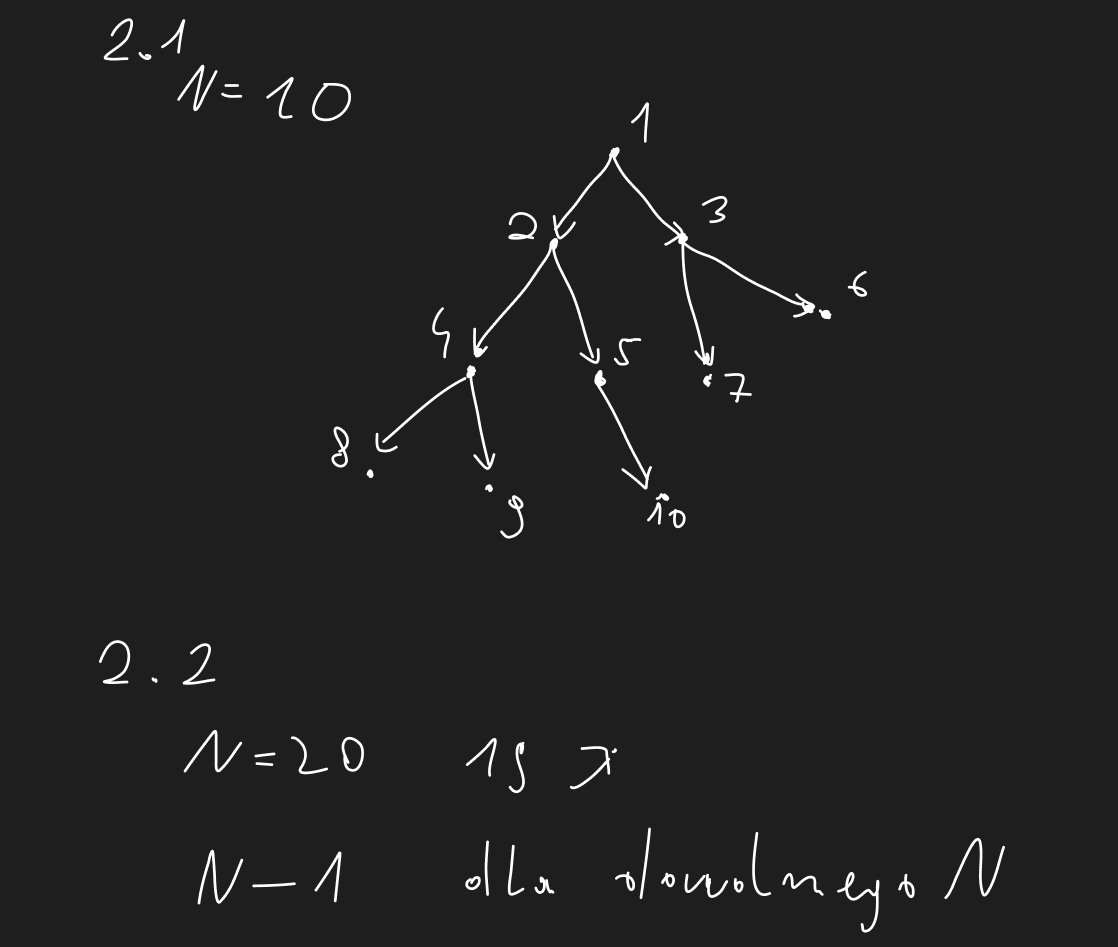 2.1
N=10
1
2 3
4 5 7 6
8 9 10
2.2
N=20 19
N-1 dla dowolnego N